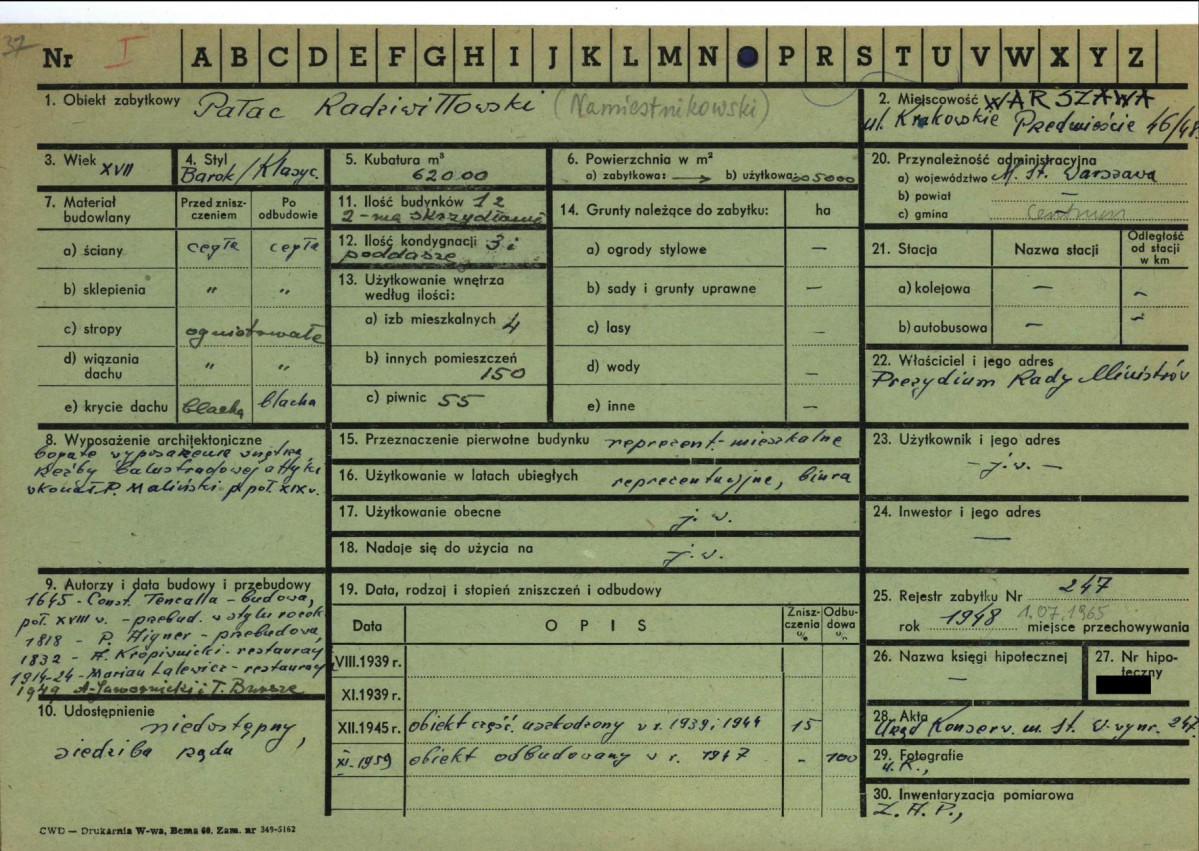 37
Nr I A B C D E F G H I J K L M N O P R S T U V W X Y Z
1. Obiekt zabytkowy Pałac Radziwiłłowski (Namiestnikowski)
2. Miejscowość WARSZAWA
ul. Krakowskie Przedmieście 46/48.
3. Wiek XVII
4. Styl
Barok/Klasyc.
5. Kubatura m³
62000
6. Powierzchnia w m²
a) zabytkowa: b) użytkowa: 5000
7. Materiał budowlany
Przed zniszczeniem
Po odbudowie
a) ściany cegła cegła
b) sklepienia " "
c) stropy ogniotrwałe
d) wiązania dachu " "
e) krycie dachu blacha blacha
8. Wyposażenie architektoniczne
bogate wyposażenie wnętrz,
rzeźby balustradowej attyki
wykonał P. Maliński p. poł. XIX w.
9. Autorzy i data budowy i przebudowy
1645 - Const. Tencalla - budowa,
poł. XVIII w. - przebud. w stylu rokok.
1818 - P. Aigner - przebudowa,
1832 - A. Kropiwnicki - restauracj
1914-24 - Marian Lalewicz - restauracj
1949 A. Jawornicki i T. Bursze
10. Udostępnienie
niedostępny,
siedziba rządu
11. Ilość budynków 1 z
2-ma skrzydłami
12. Ilość kondygnacji 3 i
poddasze
13. Użytkowanie wnętrza
według ilości:
a) izb mieszkalnych 4
b) innych pomieszczeń
150
c) piwnic 55
14. Grunty należące do zabytku: ha
a) ogrody stylowe —
b) sady i grunty uprawne —
c) lasy —
d) wody —
e) inne —
15. Przeznaczenie pierwotne budynku reprezent.-mieszkalne
16. Użytkowanie w latach ubiegłych reprezentacyjne, biura
17. Użytkowanie obecne j. w.
18. Nadaje się do użycia na j. w.
19. Data, rodzaj i stopień zniszczeń i odbudowy
Data OPIS Zniszczenia % Odbudowa %
VIII.1939 r.
XI.1939 r.
XII.1945 r. obiekt część. uszkodzony w r. 1939 i 1944 15
XI.1959 obiekt odbudowany w r. 1947 - 100
20. Przynależność administracyjna
a) województwo M. St. Warszawa
b) powiat —
c) gmina Centrum
21. Stacja Nazwa stacji Odległość od stacji w km
a) kolejowa — —
b) autobusowa — —
22. Właściciel i jego adres
Prezydium Rady Ministrów
23. Użytkownik i jego adres
- j.w. -
24. Inwestor i jego adres
—
25. Rejestr zabytku Nr 247
rok 1948 1.07.1965 miejsce przechowywania
26. Nazwa księgi hipotecznej
—
27. Nr hipoteczny
28. Akta
Urząd Konserw. m. St. W-wy nr. 247
29. Fotografie
U.K.,
30. Inwentaryzacja pomiarowa
Z.A.P.,
CWD — Drukarnia W-wa, Bema 60. Zam. nr 349-5162